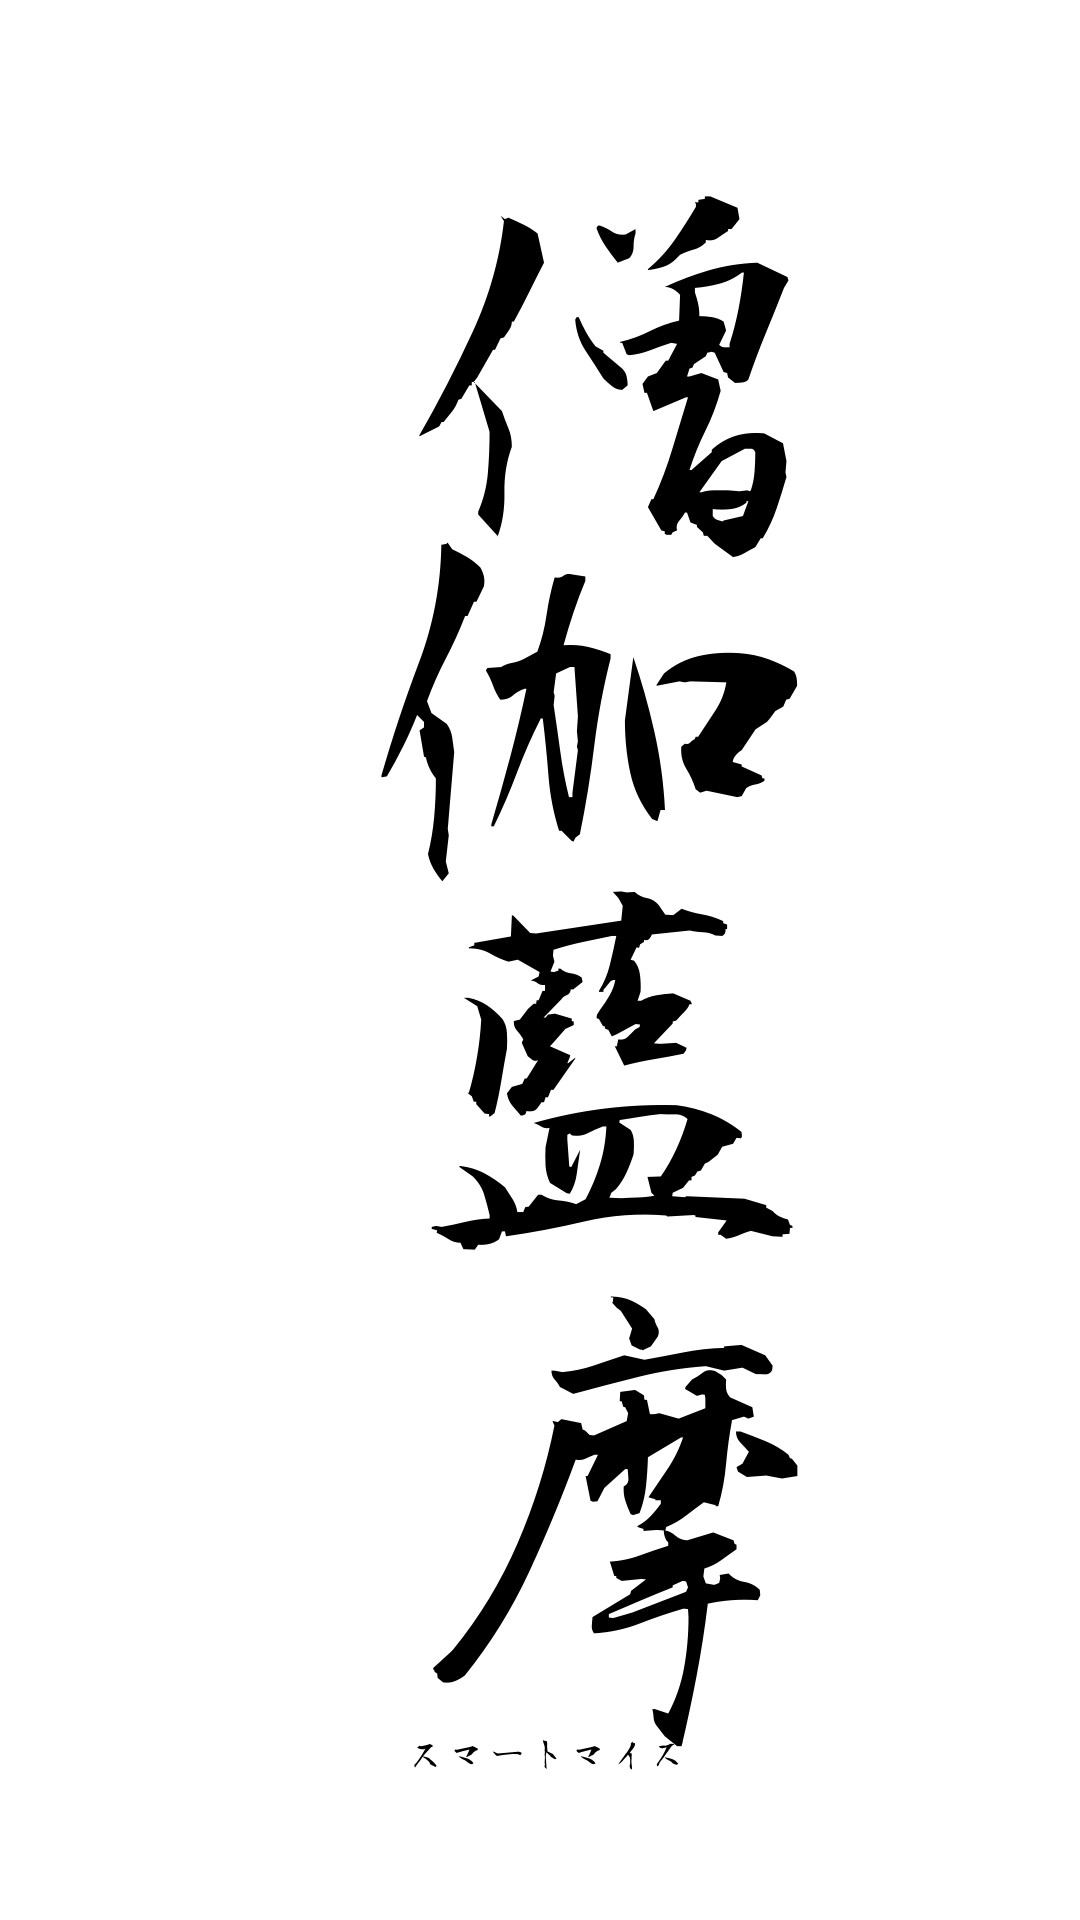 僧伽藍摩
スマートマイス